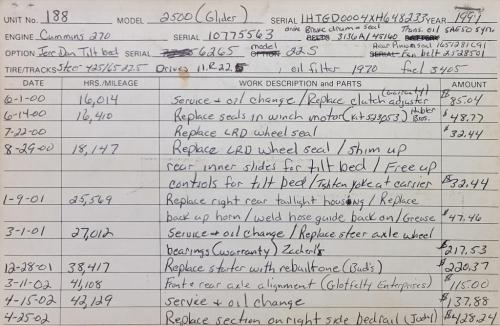 UNIT NO. 188 MODEL 2500 (Glider) SERIAL 1HTGD0004XH648233 YEAR 1999
ENGINE Cummins 270 SERIAL 10775563 Brake drum + seal 3176A/48160 Trans. oil SAE50 syn.
OPTION Jerr Dan Tilt bed SERIAL 6265 model OPTION 22.5 Rear Pinion seal 1651281C91 SERIAL Fan belt 2528501
TIRE/TRACKS Steer 425/65 22.5 Drives 11.R22.5 oil filter 1970 fuel 3405
DATE HRS./MILEAGE WORK DESCRIPTION and PARTS AMOUNT
6-1-00 16,014 Service + oil change / Replace clutch adjuster (warranty) $85.04
6-14-00 16,410 Replace seals in winch motor (kit 523053) Huber Bros. $48.77
7-22-00 Replace LRD wheel seal $32.44
8-29-00 18,147 Replace LRD wheel seal / Shim up
rear inner slides for tilt bed / Free up
controls for tilt bed / Tighten yoke at carrier $32.44
1-9-01 25,569 Replace right rear taillight housing / Replace
back up horn / weld hose guide back on / Grease $47.46
3-1-01 27,012 Service + oil change / Replace steer axle wheel
bearings (warranty) Zacherl's $217.53
12-28-01 38,417 Replace starter with rebuilt one (Bud's) $220.37
3-11-02 41,108 Front + rear axle alignment (Glotfelty Enterprises) $115.00
4-15-02 42,129 Service + oil change $137.88
4-25-02 Replace section on right side bedrail (Judy) $428.24